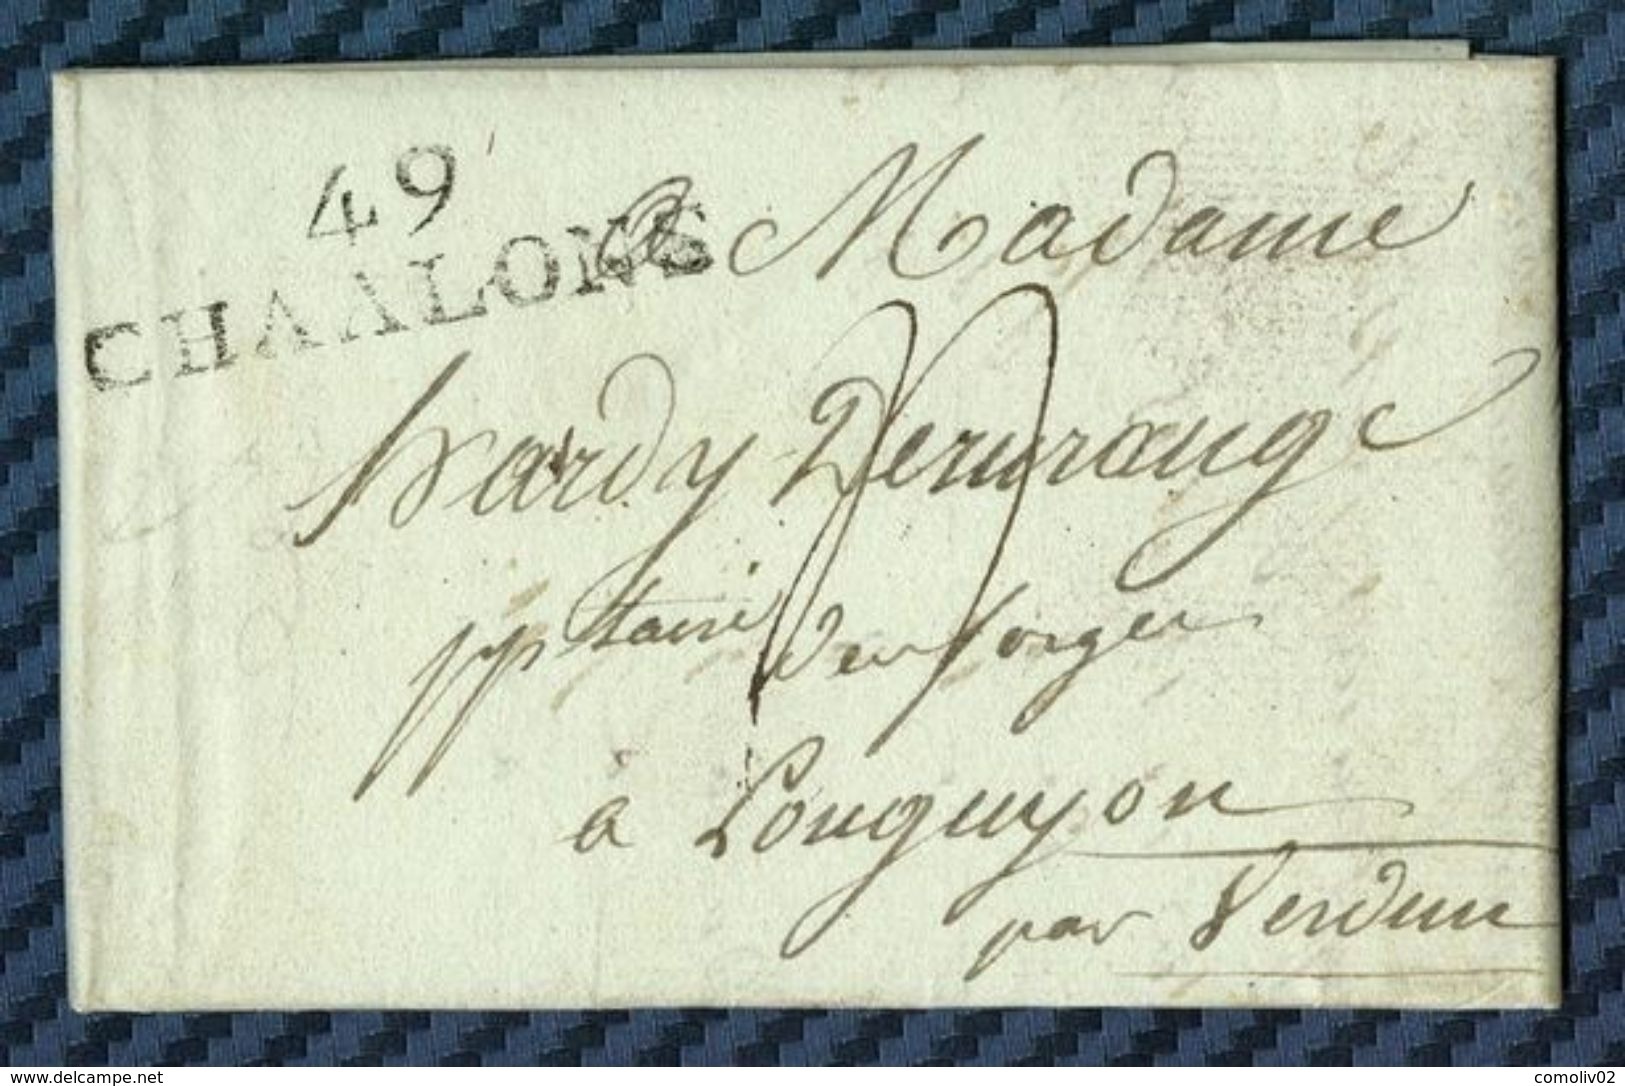 49
CHAALONS
a Madame
hardy Dervange
pptaire des forges
à Longuyon
par Verdun
www.delcampe.net
comoliv02